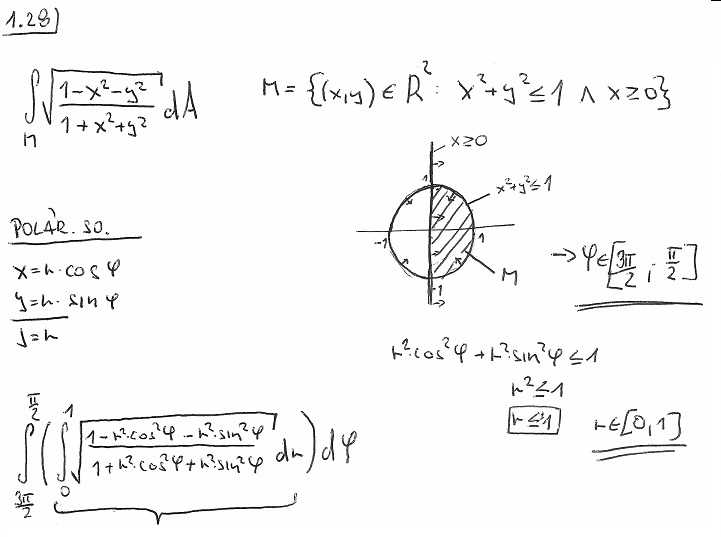 1.28)
∫_M √((1-x²-y²)/(1+x²+y²)) dA
M = {(x,y) ∈ R² : x²+y² ≤ 1 ∧ x ≥ 0}
x ≥ 0
1
x²+y² ≤ 1
-1
1
M
-1
→ φ ∈ [3π/2 ; π/2]
POLÁR. SO.
x = r · cos φ
y = r · sin φ
J = r
r² · cos² φ + r² · sin² φ ≤ 1
r² ≤ 1
r ≤ 1
r ∈ [0,1]
∫_{3π/2}^{π/2} (∫_0^1 √((1-r²·cos²φ - r²·sin²φ)/(1+r²·cos²φ+r²·sin²φ)) dr) dφ